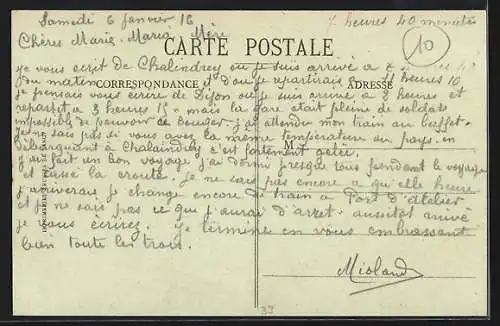 Samedi 6 janvier 16
7 heures 40 minutes
Chères Marie-Maria Mère
10
CARTE POSTALE
CORRESPONDANCE
ADRESSE
je vous ecrit de Chalindrey ou je suis arrivé a 7
du matin d'ou je repartirais a heures 10
je pensais vous ecrire de Dijon ou je suis arrivé a 3 heures et
repartit a 3 heures 15 mais la gare était pleine de soldats
impossible de pouvoir ce bouger. j'ai attendu mon train au buffet.
je ne sais pas si vous avez la même température au pays. en
débarquant à Chalaindrey c'est fortement gelée.
M
j'ai fait un bon voyage j'ai dormi presque tous pendant le voyage
et cassé la croute. je ne sais pas encore a qu'elle heure
j'arriverais je change encore de train a Port d'atelier
et je ne sais pas ce que j'aurai d'arret. aussitot arrivé
je vous écrirez. je termine en vous embrassant
bien toute les trois.
Mioland
39